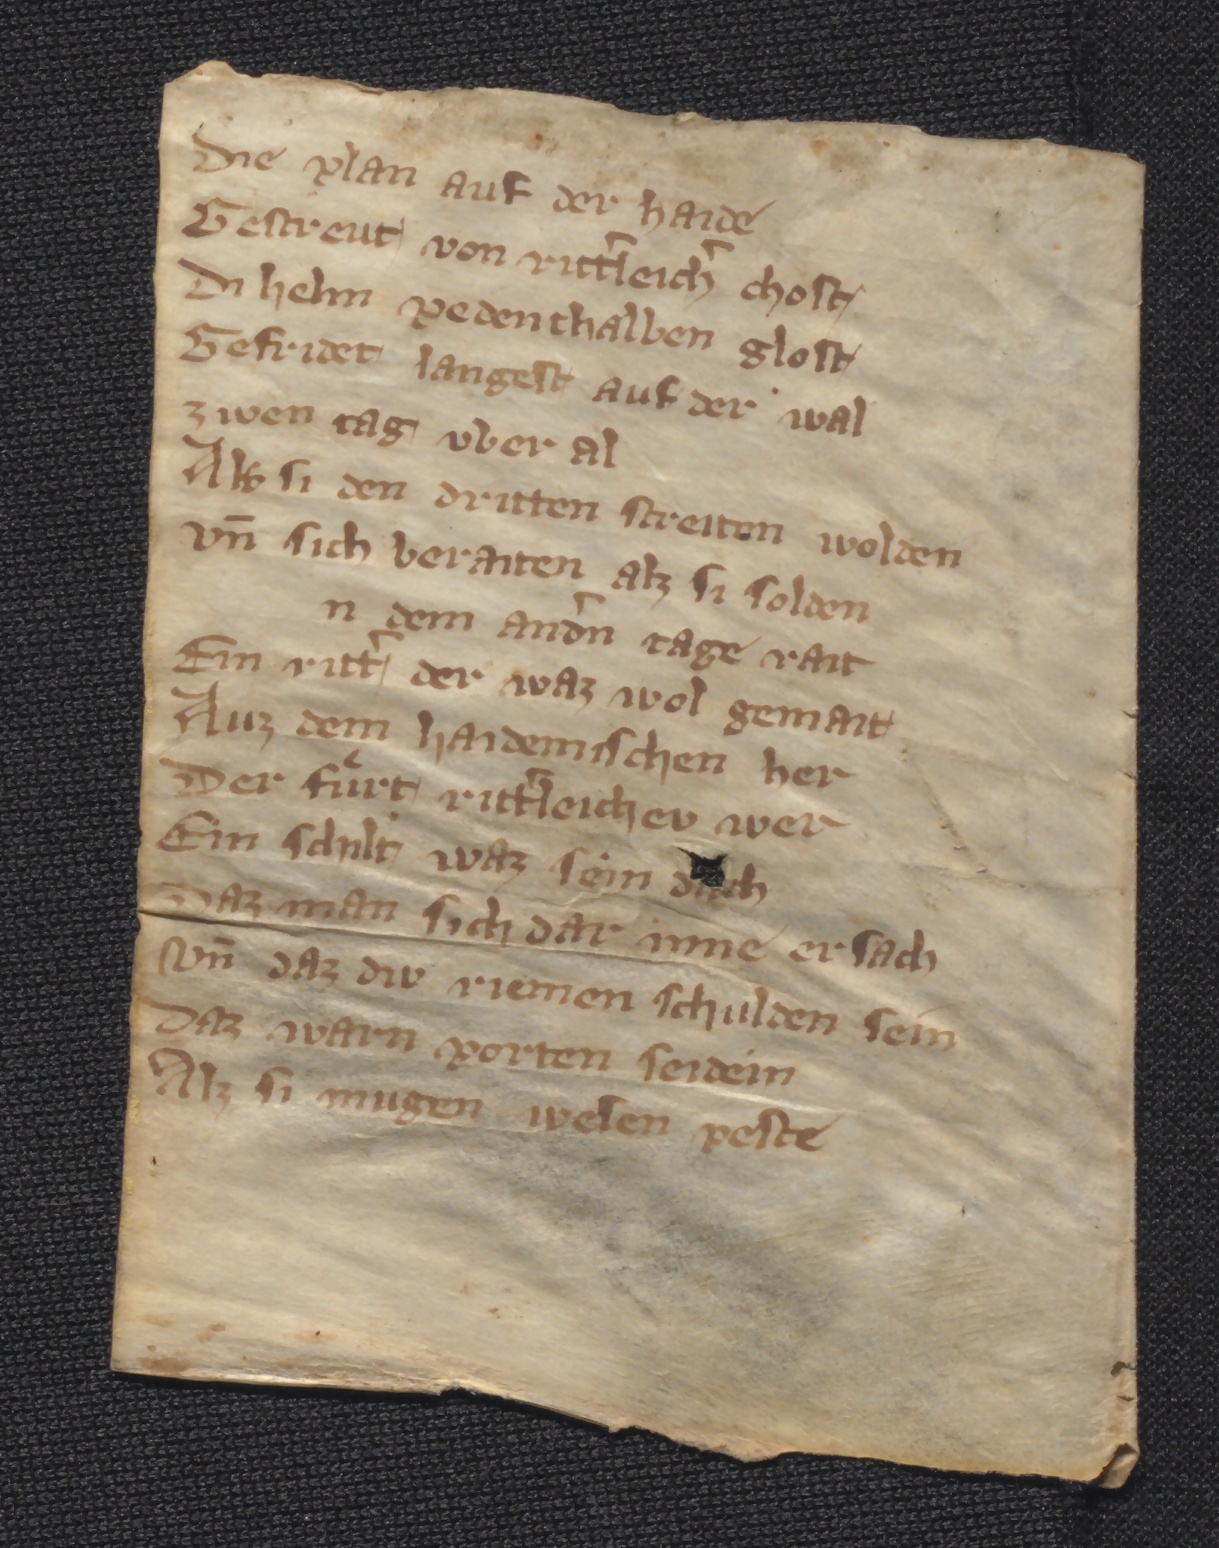 Die plan auf der haide
Gestreut von rittˀleichˀ chost
Di helm pedenthalben glost
Gefridet langest auf der wal
zwen tag vber al
Als si den dritten streiten wolden
vn̄ sich beraiten alz si solden
n dem andˀn tage rait
Ein rittˀ der waz wol gemait
Auz dem haidenischen her
Der fuͤrt rittˀleichev wer
Ein schilt waz sein dach
Daz man sich dar inne ersach
Vn̄ daz div riemen schulden sein
Daz warn porten seidein
Alz si mugen wesen peste